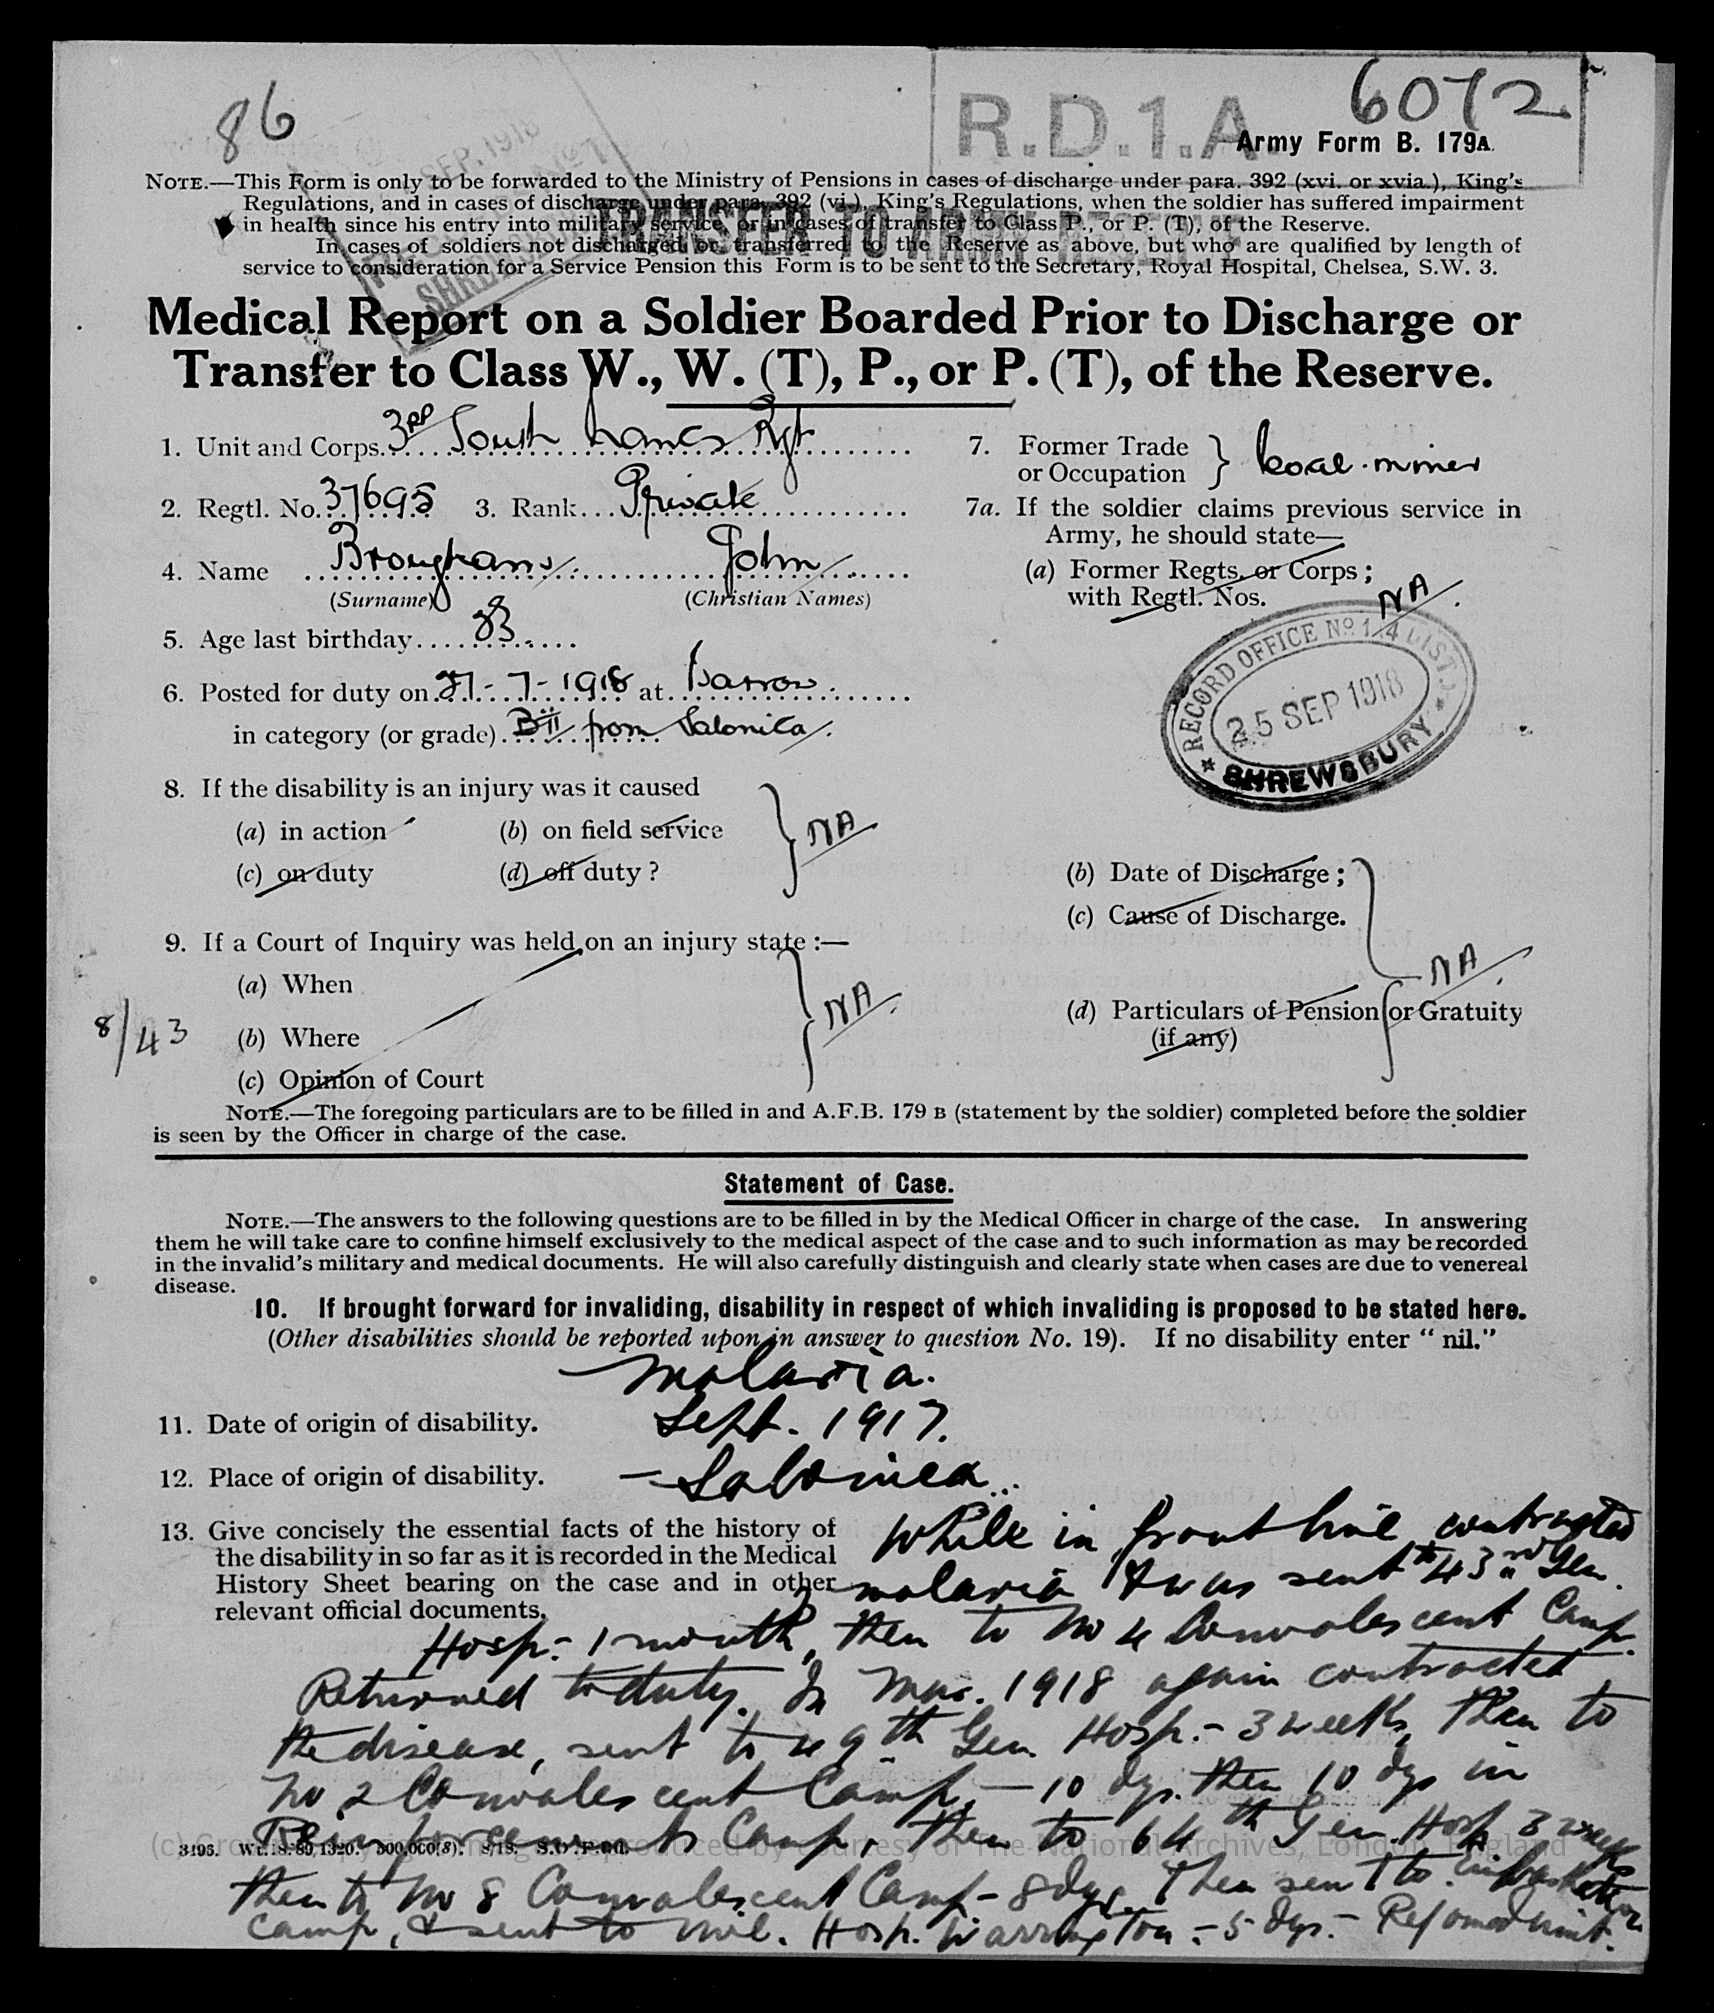 86
6072
R.D.1.A.
Army Form B. 179A.
SEP. 1918
NOTE.—This Form is only to be forwarded to the Ministry of Pensions in cases of discharge under para. 392 (xvi. or xvia.), King's
Regulations, and in cases of discharge under para. 392 (vi.), King's Regulations, when the soldier has suffered impairment
in health since his entry into military service, or in cases of transfer to Class P., or P. (T), of the Reserve.
TRANSFER TO ARMY RESERVE
In cases of soldiers not discharged or transferred to the Reserve as above, but who are qualified by length of
service to consideration for a Service Pension this Form is to be sent to the Secretary, Royal Hospital, Chelsea, S.W. 3.
Medical Report on a Soldier Boarded Prior to Discharge or
Transfer to Class W., W. (T), P., or P. (T), of the Reserve.
1. Unit and Corps. 3RD South Lancs Rgt
2. Regtl. No. 37695 3. Rank Private
4. Name Brougham John
(Surname) (Christian Names)
5. Age last birthday
6. Posted for duty on 27-7-1918 at Barrow.
in category (or grade) BII from Salonica.
7. Former Trade or Occupation } Coal-miner
7a. If the soldier claims previous service in
Army, he should state—
(a) Former Regts. or Corps;
with Regtl. Nos. NA.
RECORD OFFICE No. 1/4 DIST.
25 SEP 1918
SHREWSBURY
8. If the disability is an injury was it caused
(a) in action (b) on field service
(c) on duty (d) off duty? NA
(b) Date of Discharge;
(c) Cause of Discharge.
NA
(d) Particulars of Pension or Gratuity
(if any)
9. If a Court of Inquiry was held on an injury state:—
(a) When
(b) Where NA
(c) Opinion of Court
8/43
NOTE.—The foregoing particulars are to be filled in and A.F.B. 179 B (statement by the soldier) completed before the soldier
is seen by the Officer in charge of the case.
Statement of Case.
NOTE.—The answers to the following questions are to be filled in by the Medical Officer in charge of the case. In answering
them he will take care to confine himself exclusively to the medical aspect of the case and to such information as may be recorded
in the invalid's military and medical documents. He will also carefully distinguish and clearly state when cases are due to venereal
disease.
10. If brought forward for invaliding, disability in respect of which invaliding is proposed to be stated here.
(Other disabilities should be reported upon in answer to question No. 19). If no disability enter "nil."
Malaria.
11. Date of origin of disability. Sept. 1917.
12. Place of origin of disability. – Salonica
13. Give concisely the essential facts of the history of
the disability in so far as it is recorded in the Medical
History Sheet bearing on the case and in other
relevant official documents.
While in front line contracted
malaria & was sent to 43rd Gen.
Hosp. - 1 month, then to No 4 Convalescent Camp.
Returned to duty. In Mar. 1918 again contracted
the disease, sent to 49th Gen Hosp. - 3 weeks, then to
No 2 Convalescent Camp, — 10 dys. then 10 dys in
Reinforcements Camp, then to 64th Gen. Hosp 3 weeks
then to No 8 Convalescent Camp - 8 dys. Then sent to Embarkation
Camp, & sent to Mil. Hosp. Warrington - 5 dys. - Rejoined unit.
3496. 300,000(8). 8/18.
(c) Crown Copyright Images reproduced by courtesy of The National Archives, London, England